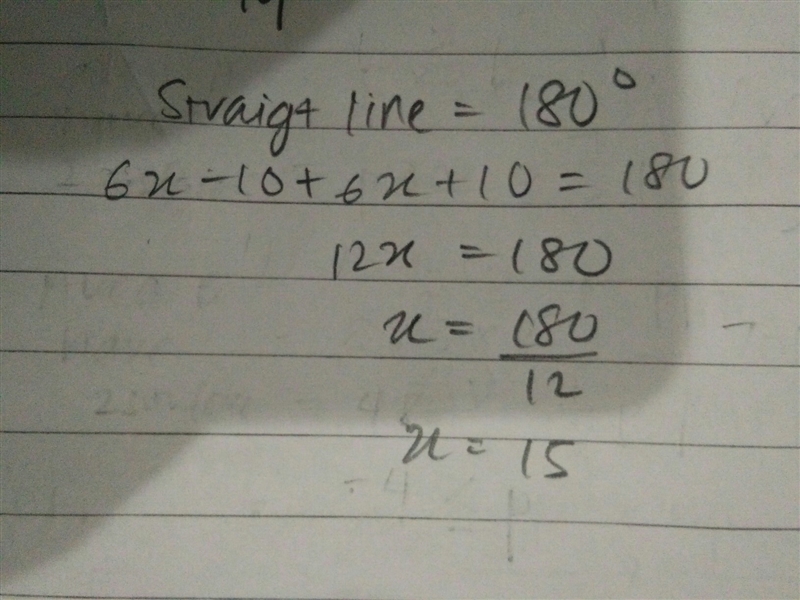 Straigt line = 180°
6x - 10 + 6x + 10 = 180
12x = 180
x = 180
12
x = 15